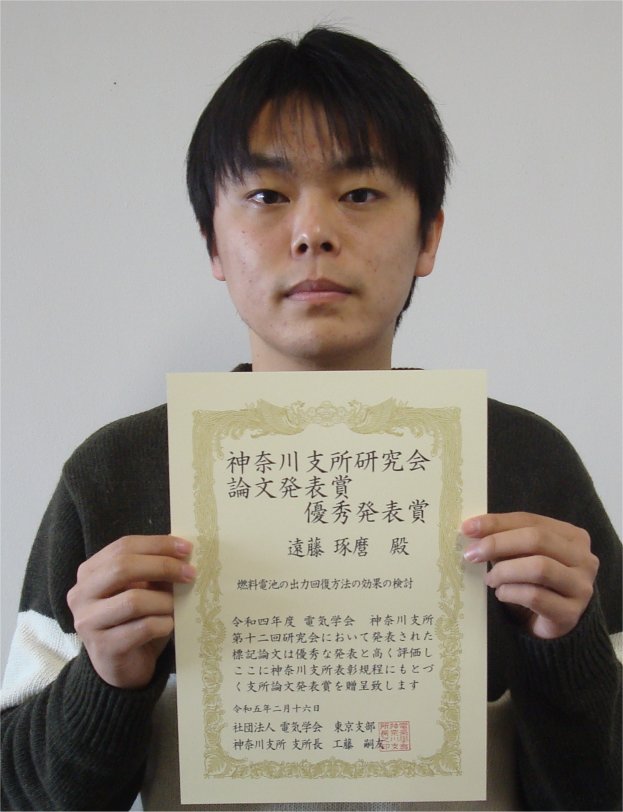 神奈川支所研究会
論文発表賞
優秀発表賞
遠藤 琢磨 殿
燃料電池の出力回復方法の効果の検討
令和四年度 電気学会 神奈川支所
第十二回研究会において発表された
標記論文は優秀な発表と高く評価し
ここに神奈川支所表彰規程にもとづ
く支所論文発表賞を贈呈致します
令和五年二月十六日
社団法人 電気学会 東京支部
神奈川支所 支所長 工藤 嗣友